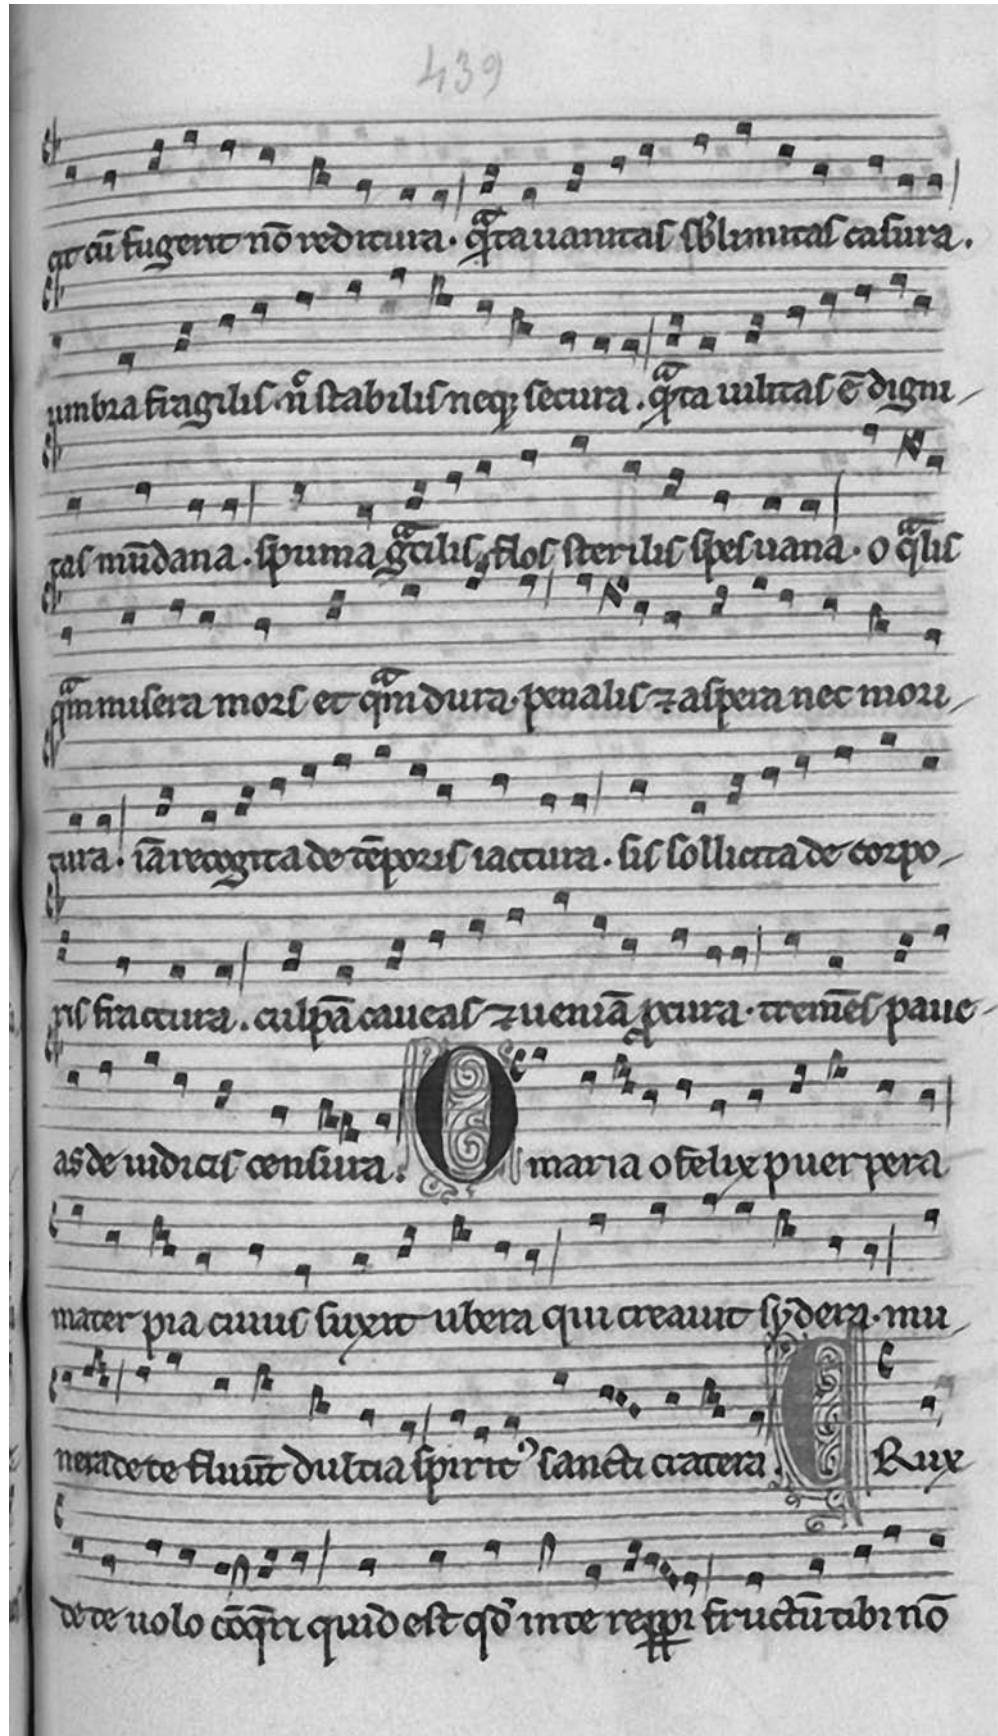 439
it cū fugerit nō reditura. q̄ta uanitas sb'limitas casura.
umbra fragilis nō stabilis neq; secura. q̄ta uilitas ē digni
tas mūdana. spuma gͣcilis flos sterilis spes uana. o qͣlis
qͣm misera mors et qͣm dura. penalis ⁊ aspera nec mori
tura. iā recogita de tēporis iactura. sis sollicita de corpo
ris fractura. culpā caueas ⁊ ueniā ꝓcura. tremēs paue
as de iudicis censura. O maria o felix puerpera
mater pia cuius suxit ubera qui creauit sydera. mu
nera de te fluūt dulcia spirit' sancti cratera. C Rux
de te uolo cōq̄ri quid est qd' in te repperi fructū tibi nō